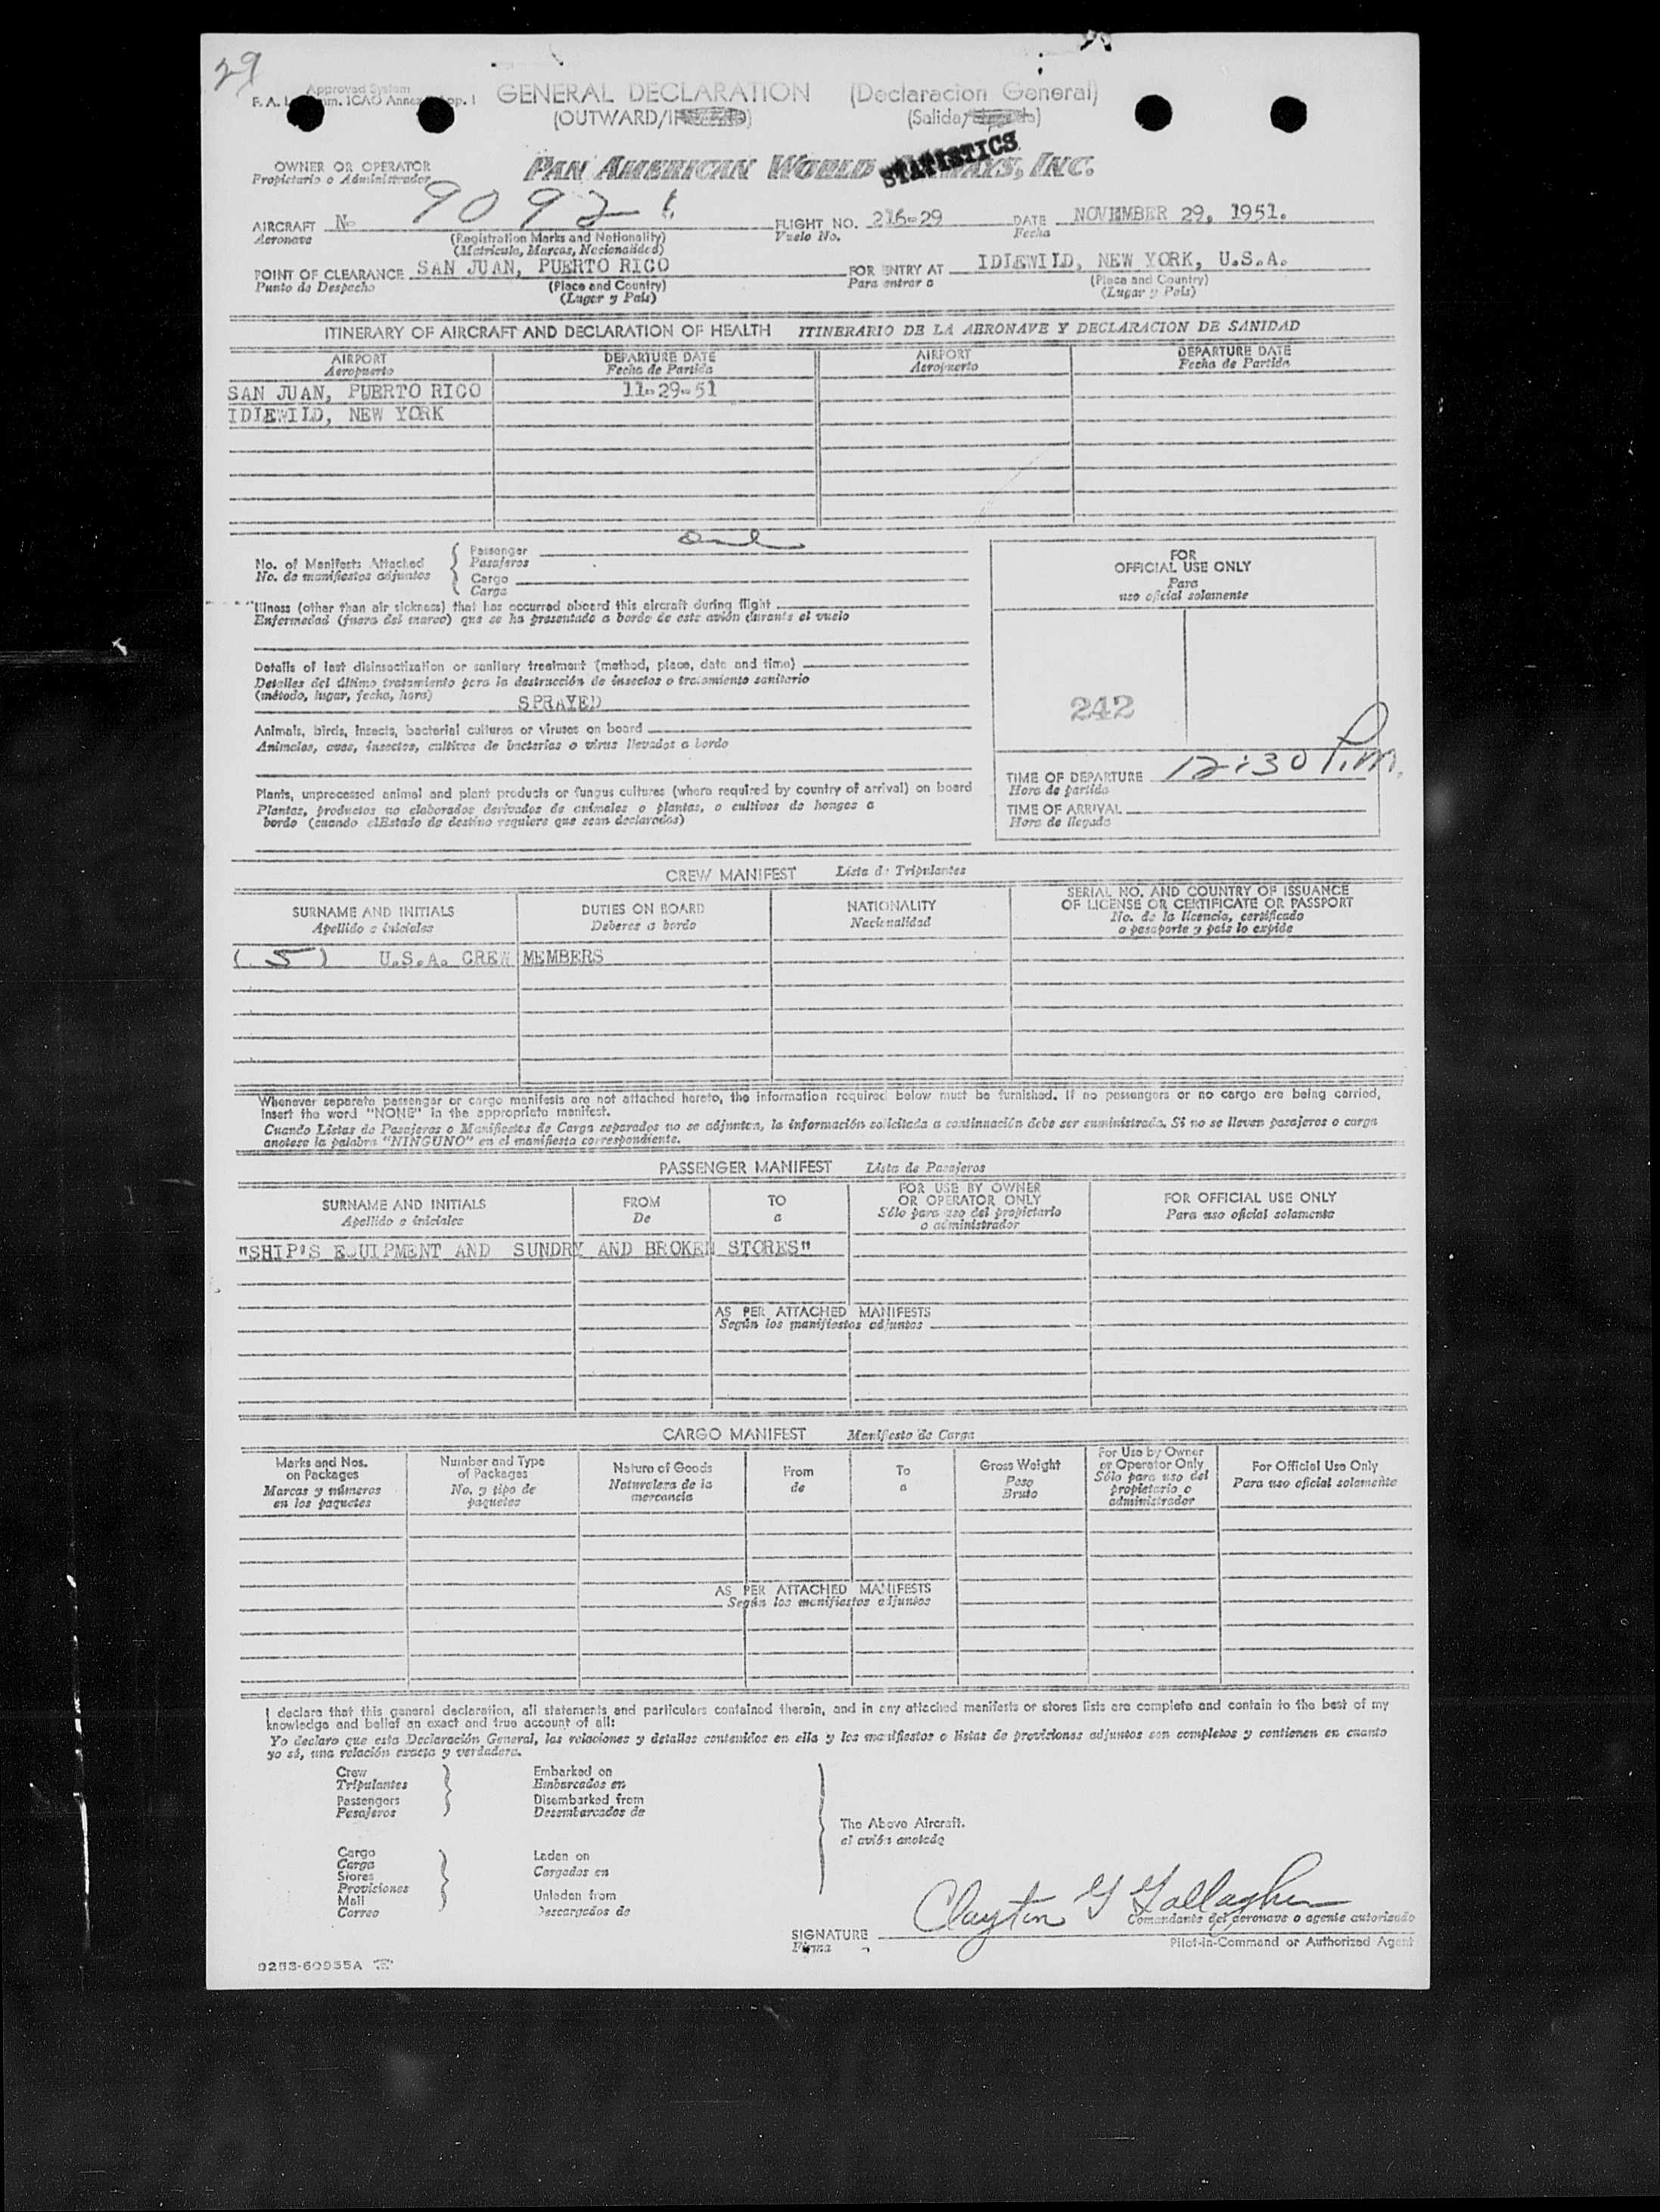 29
Approved System
GENERAL DECLARATION (Declaracion General)
(OUTWARD/
(Salida/
STATISTICS
OWNER OR OPERATOR
Propietario o Administrador
PAN AMERICAN WORLD AIRWAYS, INC.
AIRCRAFT No 9092 FLIGHT NO. 216-29 DATE NOVEMBER 29, 1951.
Aeronave (Registration Marks and Nationality) Vuelo No. Fecha
(Matricula, Marcas, Nacionalidad)
POINT OF CLEARANCE SAN JUAN, PUERTO RICO FOR ENTRY AT IDLEWILD, NEW YORK, U.S.A.
Punto de Despacho (Place and Country) Para entrar a (Place and Country)
(Lugar y País) (Lugar y País)
ITINERARY OF AIRCRAFT AND DECLARATION OF HEALTH ITINERARIO DE LA AERONAVE Y DECLARACION DE SANIDAD
AIRPORT DEPARTURE DATE AIRPORT DEPARTURE DATE
Aeropuerto Fecha de Partida Aeropuerto Fecha de Partida
SAN JUAN, PUERTO RICO 11-29-51
IDLEWILD, NEW YORK
No. of Manifests Attached
No. de manifiestos adjuntos
Passenger
Pasajeros
Cargo
Carga
Illness (other than air sickness) that has occurred aboard this aircraft during flight
Enfermedad (fuera del mareo) que se ha presentado a bordo de este avión durante el vuelo
Details of last disinsectization or sanitary treatment (method, place, date and time)
Detalles del último tratamiento para la destrucción de insectos o tratamiento sanitario
(método, lugar, fecha, hora)
SPRAYED
Animals, birds, insects, bacterial cultures or viruses on board
Animales, aves, insectos, cultivos de bacterias o virus llevados a bordo
Plants, unprocessed animal and plant products or fungus cultures (where required by country of arrival) on board
Plantas, productos no elaborados derivados de animales o plantas, o cultivos de hongos a
bordo (cuando elEstado de destino requiere que sean declarados)
FOR
OFFICIAL USE ONLY
Para
uso oficial solamente
242
TIME OF DEPARTURE 12:30 P.m.
Hora de partida
TIME OF ARRIVAL
Hora de llegada
CREW MANIFEST Lista de Tripulantes
SURNAME AND INITIALS DUTIES ON BOARD NATIONALITY SERIAL NO. AND COUNTRY OF ISSUANCE
OF LICENSE OR CERTIFICATE OR PASSPORT
Apellido e iniciales Deberes a bordo Nacionalidad No. de la licencia, certificado
o pasaporte y país lo expide
( 5 ) U.S.A. CREW MEMBERS
Whenever separate passenger or cargo manifests are not attached hereto, the information required below must be furnished. If no passengers or no cargo are being carried,
insert the word "NONE" in the appropriate manifest.
Cuando Listas de Pasajeros o Manifiestos de Carga separados no se adjuntan, la información solicitada a continuación debe ser suministrada. Si no se llevan pasajeros o carga
anotese la palabra "NINGUNO" en el manifiesto correspondiente.
PASSENGER MANIFEST Lista de Pasajeros
SURNAME AND INITIALS FROM TO FOR USE BY OWNER
OR OPERATOR ONLY FOR OFFICIAL USE ONLY
Apellido e iniciales De a Sólo para uso del propietario
o administrador Para uso oficial solamente
"SHIP'S EQUIPMENT AND SUNDRY AND BROKEN STORES"
AS PER ATTACHED MANIFESTS
Según los manifiestos adjuntos
CARGO MANIFEST Manifiesto de Carga
Marks and Nos.
on Packages
Marcas y números
en los paquetes
Number and Type
of Packages
No. y tipo de
paquetes
Nature of Goods
Naturaleza de la
mercancia
From
de
To
a
Gross Weight
Peso
Bruto
For Use by Owner
or Operator Only
Sólo para uso del
propietario o
administrador
For Official Use Only
Para uso oficial solamente
AS PER ATTACHED MANIFESTS
Según los manifiestos adjuntos
I declare that this general declaration, all statements and particulars contained therein, and in any attached manifests or stores lists are complete and contain to the best of my
knowledge and belief an exact and true account of all:
Yo declaro que esta Declaración General, las relaciones y detalles contenidos en ella y los manifiestos o listas de provisiones adjuntos son completos y contienen en cuanto
yo sé, una relación exacta y verdadera.
Crew
Tripulantes
Passengers
Pasajeros
Embarked on
Embarcados en
Disembarked from
Desembarcados de
Cargo
Carga
Stores
Provisiones
Mail
Correo
Laden on
Cargados en
Unladen from
Descargados de
The Above Aircraft.
el avión anotado
SIGNATURE Clayton G Gallagher
Firma
Comandante del aeronave o agente autorizado
Pilot-in-Command or Authorized Agent